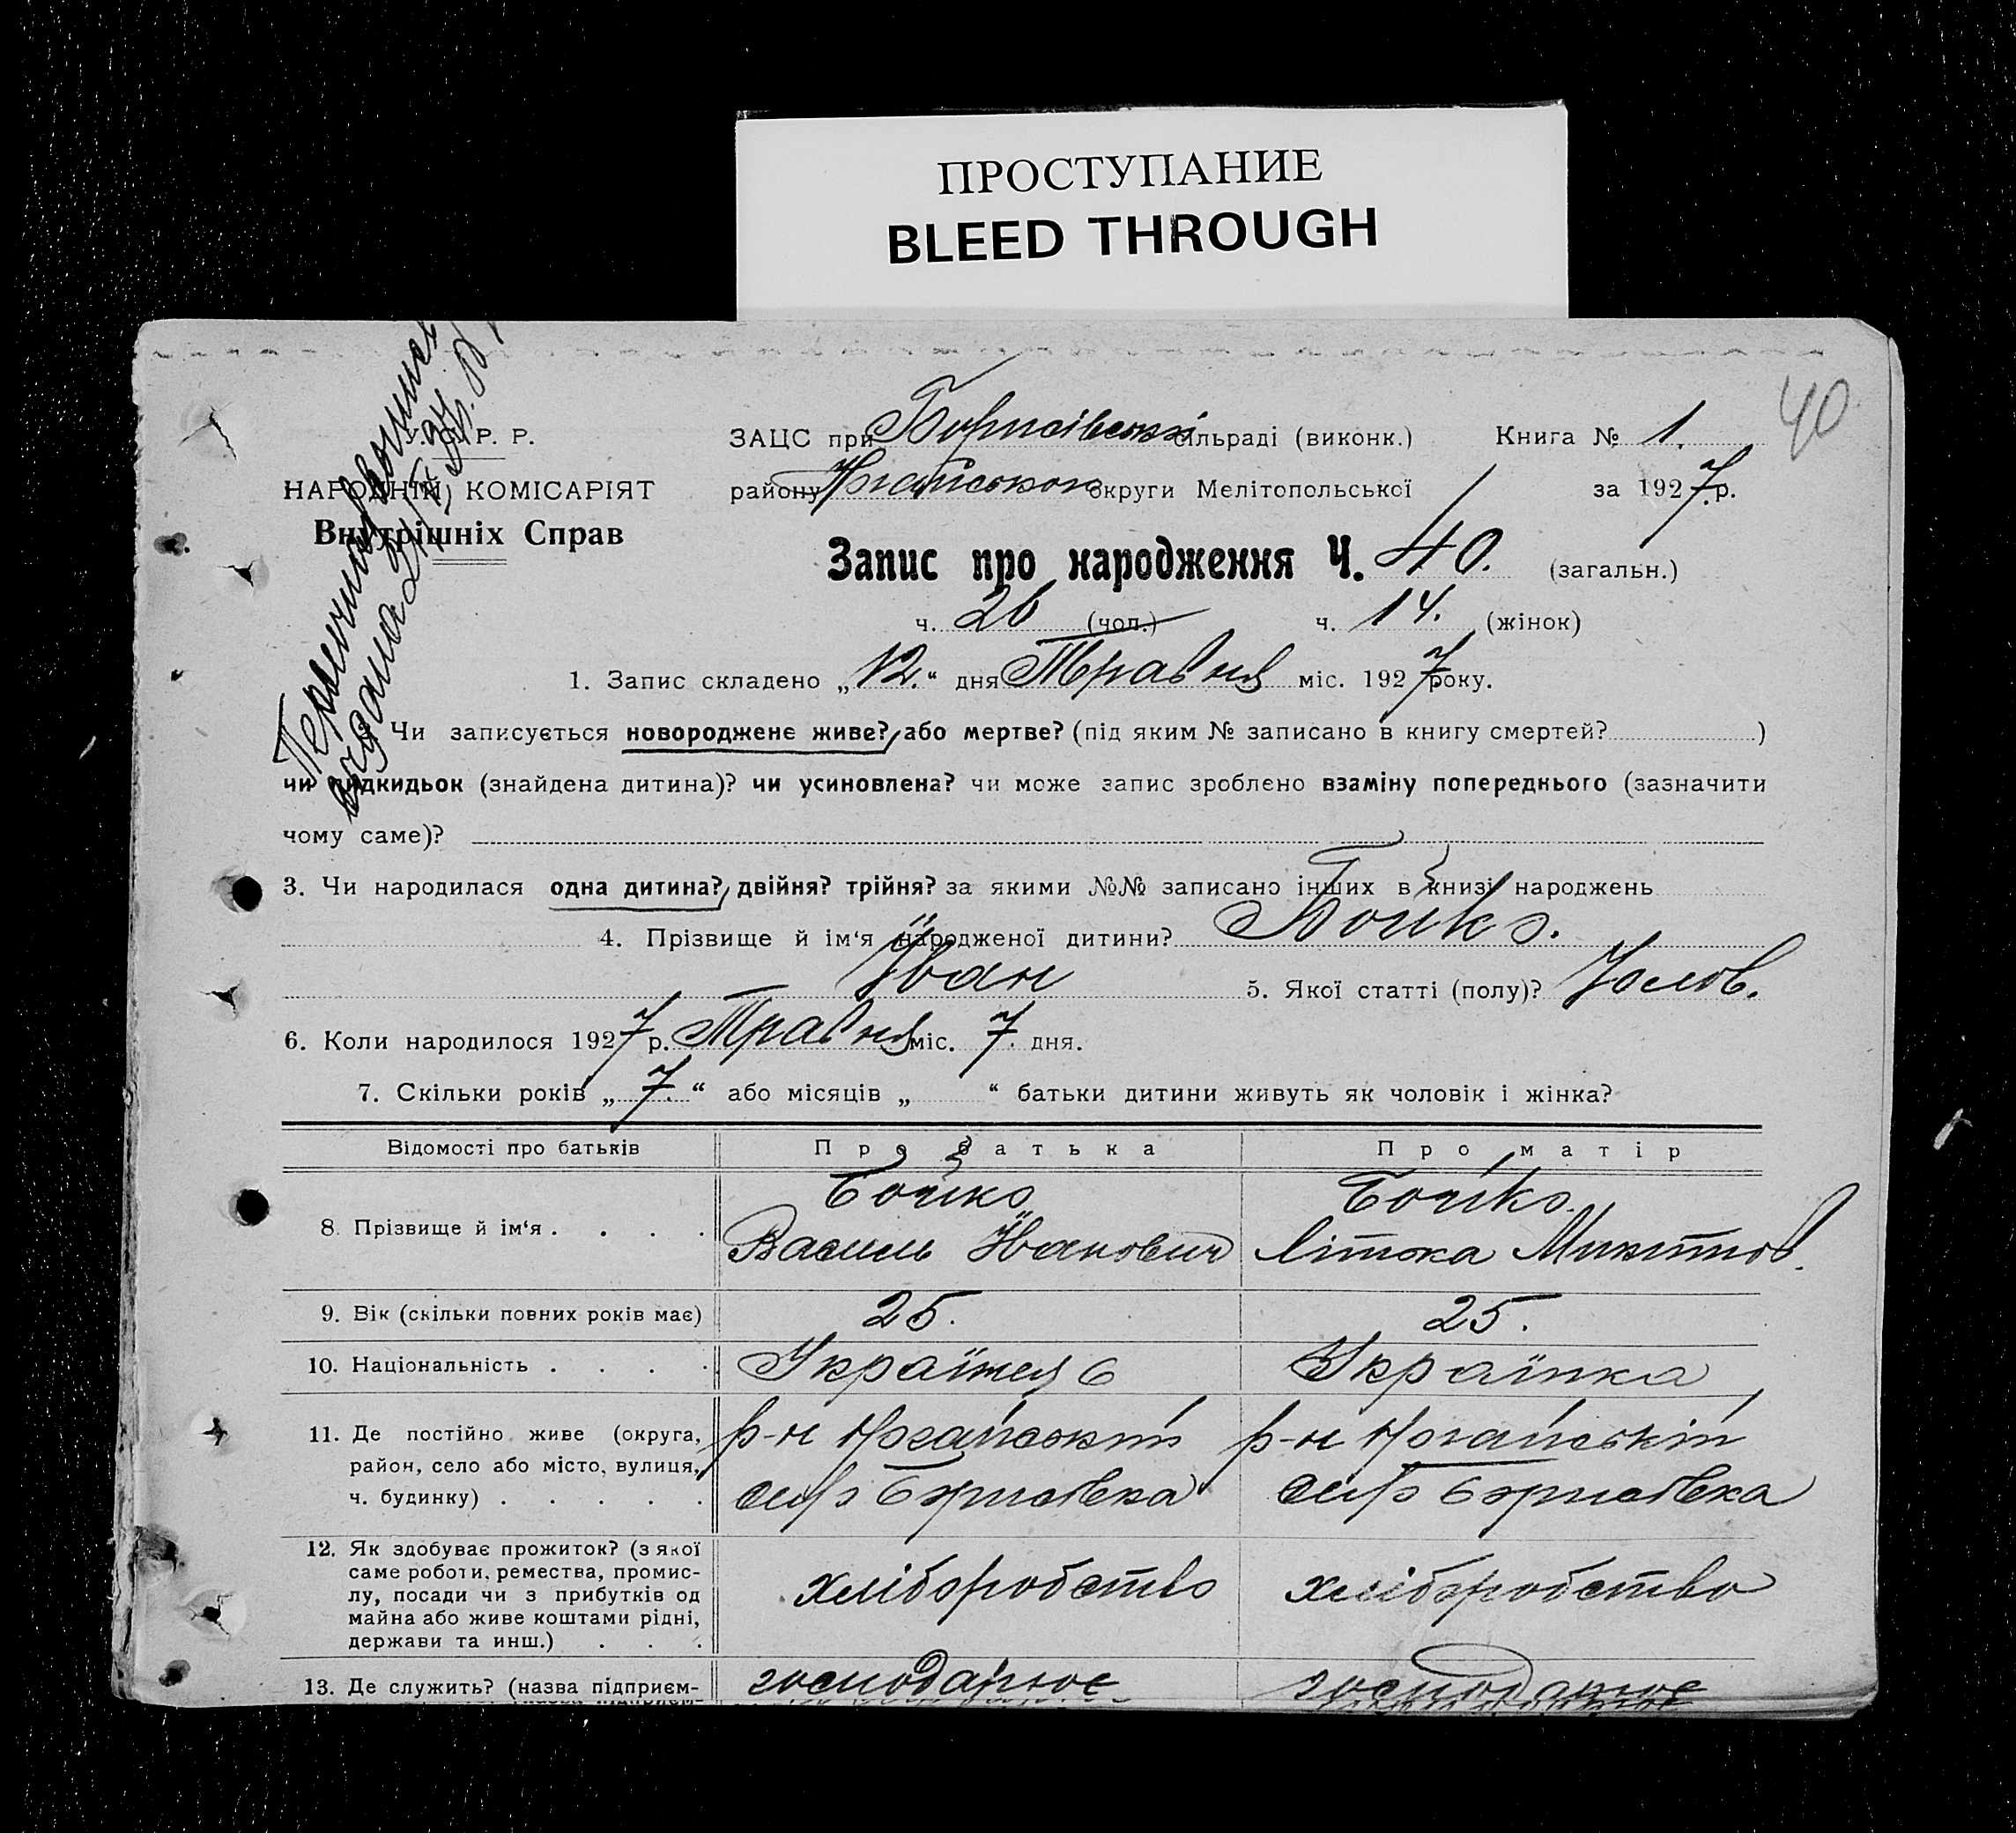 ПРОСТУПАНИЕ
BLEED THROUGH
40
У. С. Р. Р.
НАРОДНІЙ КОМІСАРІЯТ
Внутрішніх Справ
ЗАЦС при Борисівській сільраді (виконк.) Книга № 1.
району Ногайського округи Мелітопольської за 1927 р.
Запис про народження Ч. 40. (загальн.)
ч. 26 (чол.) ч. 14. (жінок)
1. Запис складено „12.“ дня Травня міс. 1927 року.
Чи записується новороджене живе? або мертве? (під яким № записано в книгу смертей? )
чи підкидьок (знайдена дитина)? чи усиновлена? чи може запис зроблено взаміну попереднього (зазначити
чому саме)?
3. Чи народилася одна дитина? двійня? трійня? за якими №№ записано інших в книзі народжень
4. Прізвище й ім‘я народженої дитини? Бойко.
Іван 5. Якої статті (полу)? Чолов.
6. Коли народилося 1927 р. Травня міс. 7. дня.
7. Скільки років „7.“ або місяців „ “ батьки дитини живуть як чоловік і жінка?
Відомості про батьків Про батька Про матір
8. Прізвище й ім‘я . . . . Бойко Василь Іванович Бойко. Микитов.
9. Вік (скільки повних років має) 25. 25.
10. Національність . . . . Українець Українка
11. Де постійно живе (округа, р-н Ногайський р-н Ногайській
район, село або місто, вулиця, село Борисівка село Борисівка
ч. будинку) . . . . .
12. Як здобуває прожиток? (з якої
саме роботи, ремества, промис-
лу, посади чи з прибутків од хліборобство хліборобство
майна або живе коштами рідні,
держави та инш.) . . .
13. Де служить? (назва підприєм- господарює господарює